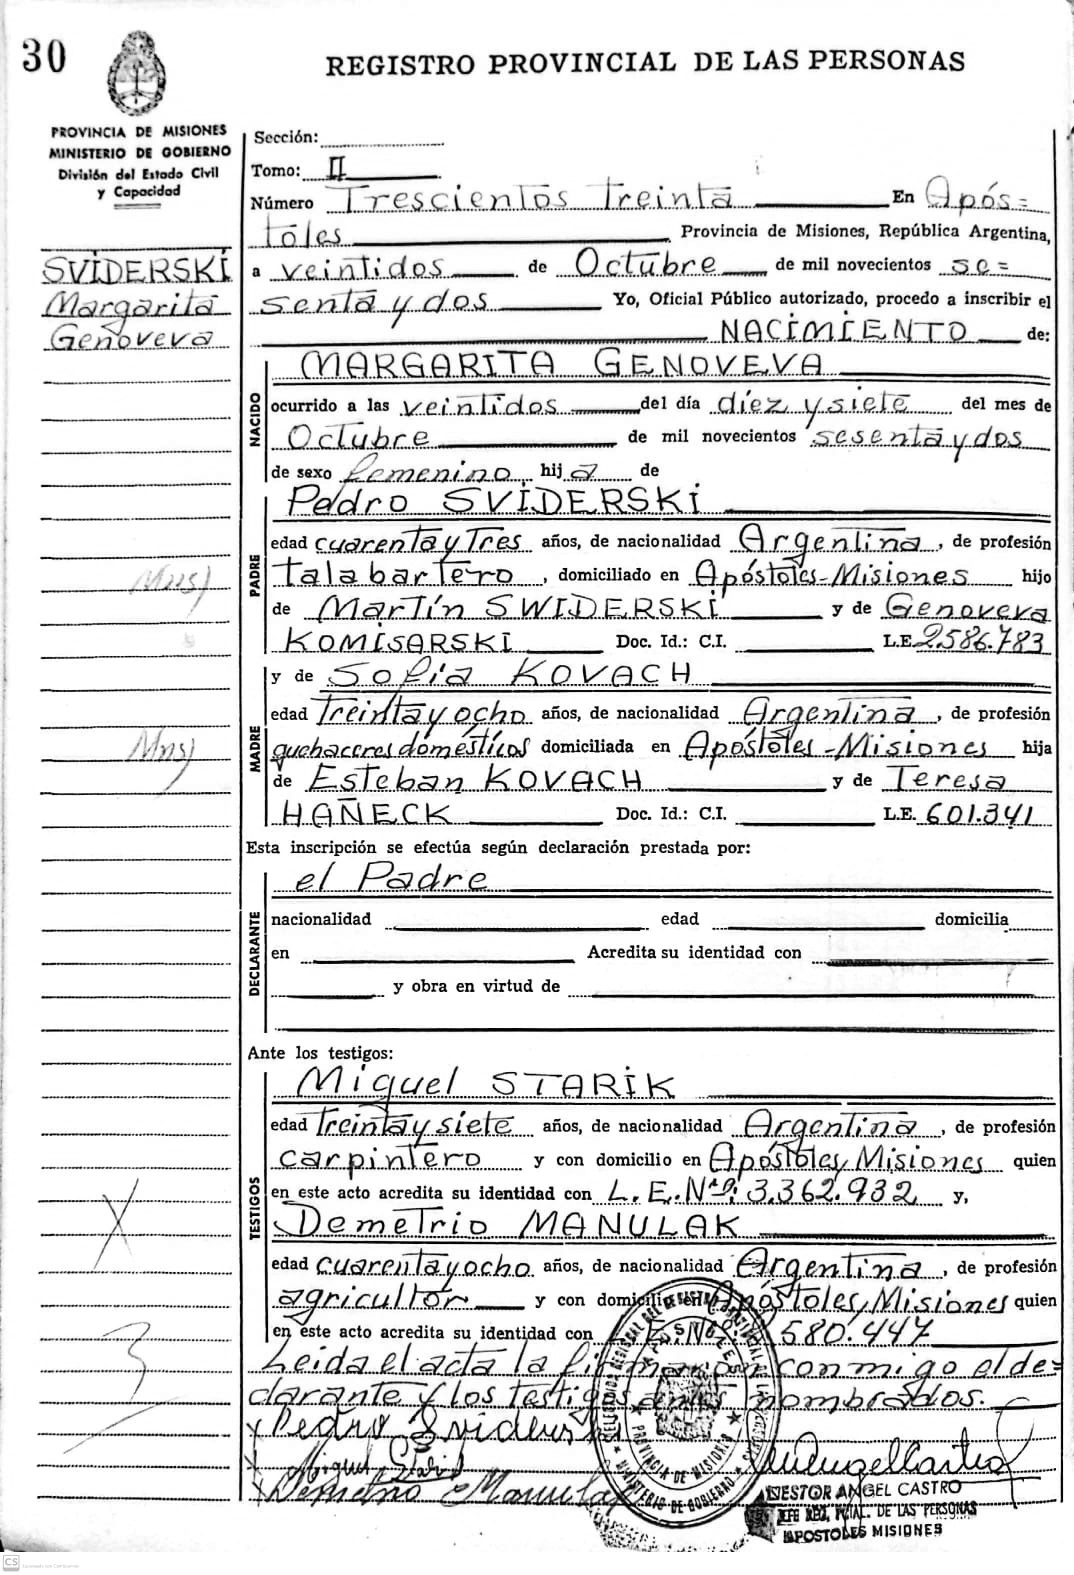 30
REGISTRO PROVINCIAL DE LAS PERSONAS
PROVINCIA DE MISIONES
MINISTERIO DE GOBIERNO
División del Estado Civil
y Capacidad
SVIDERSKI
Margarita
Genoveva
Sección:
Tomo: II
Número Trescientos Treinta En Após=
toles Provincia de Misiones, República Argentina,
a veintidos de Octubre de mil novecientos se=
senta y dos Yo, Oficial Público autorizado, procedo a inscribir el
NACIMIENTO de:
NACIDO
MARGARITA GENOVEVA
ocurrido a las veintidos del día diez y siete del mes de
Octubre de mil novecientos sesenta y dos
de sexo femenino hija de
PADRE
Pedro SVIDERSKI
edad cuarenta y Tres años, de nacionalidad Argentina, de profesión
talabartero, domiciliado en Apóstoles-Misiones hijo
de Martín SWIDERSKI y de Genoveva
KOMISARSKI Doc. Id.: C.I. L.E. 2586.783
y de Sofia KOVACH
MADRE
edad Treinta y ocho años, de nacionalidad Argentina, de profesión
quehaceres domésticos domiciliada en Apóstoles-Misiones hija
de Esteban KOVACH y de Teresa
HAÑECK Doc. Id.: C.I. L.E. 601.341
Esta inscripción se efectúa según declaración prestada por:
DECLARANTE
el Padre
nacionalidad edad domicilia
en Acredita su identidad con
y obra en virtud de
Ante los testigos:
TESTIGOS
Miguel STARIK
edad Treinta y siete años, de nacionalidad Argentina, de profesión
carpintero y con domicilio en Apóstoles, Misiones quien
en este acto acredita su identidad con L.E. Nº: 3.362.932 y,
Demetrio MANULAK
edad cuarenta y ocho años, de nacionalidad Argentina, de profesión
agricultor y con domicilio en Apóstoles, Misiones quien
en este acto acredita su identidad con 580.447
Leida el acta la conmigo el de=
clarante y los testigos nombrados.
Pedro
Miguel Starik
Demetrio Manulak
PROVINCIA DE MISIONES
MINISTERIO DE GOBIERNO
NESTOR ANGEL CASTRO
JEFE REG. PCIAL. DE LAS PERSONAS
APOSTOLES MISIONES
CS